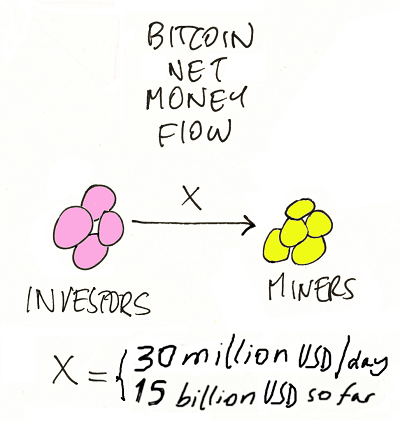 BITCOIN
NET
MONEY
FLOW
X
INVESTORS
MINERS
X = { 30 million USD/day
15 billion USD so far